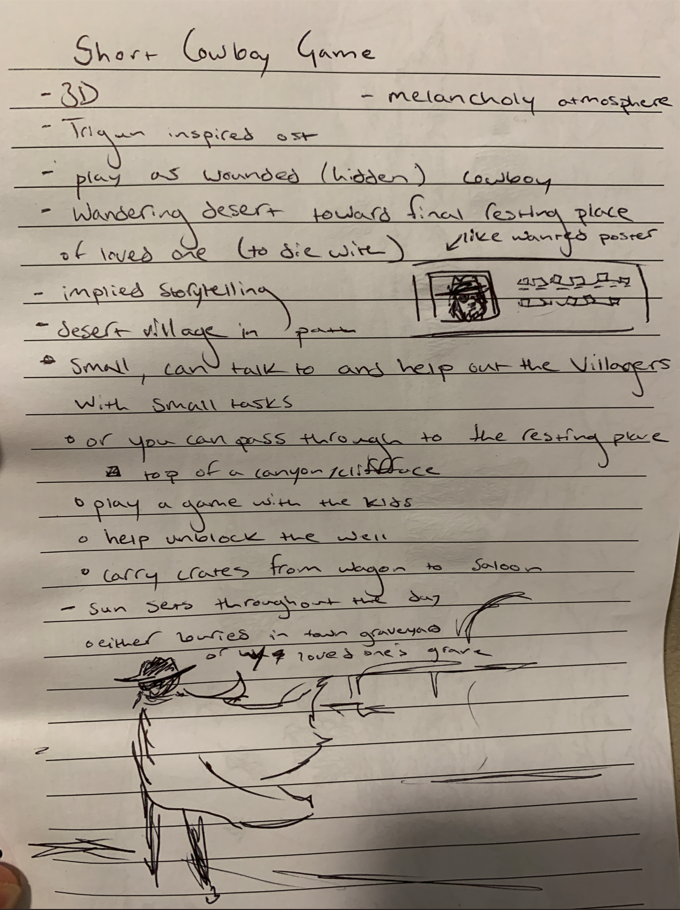 Short Cowboy Game
- 3D - melancholy atmosphere
- Trigun inspired ost
- play as wounded (hidden) cowboy
- Wandering desert toward final resting place
of loved one (to die with) like wanted poster
- implied storytelling
- desert village in path
Small, can talk to and help out the Villagers
With small tasks
o or you can pass through to the resting place
top of a canyon/cliff face
o play a game with the kids
o help unblock the well
o carry crates from wagon to saloon
- Sun sets throughout the day
o either buries in town graveyard
or loved one's grave